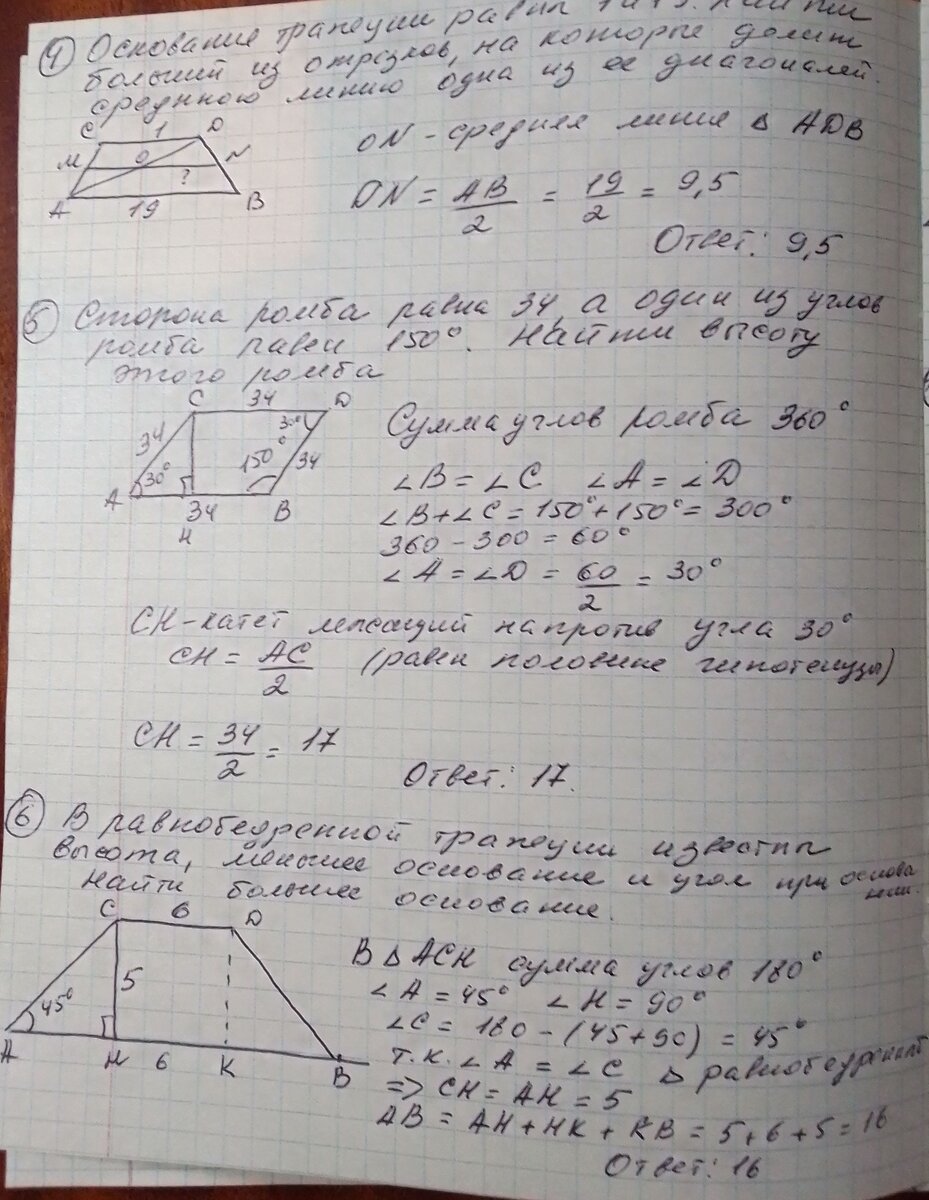 4 Основание трапеции равны 1 и 19. Найти
больший из отрезков, на которые делит
среднюю линию одна из ее диагоналей.
C 1 D
M O N
?
A 19 B
ON - средняя линия Δ ADB
ON = AB/2 = 19/2 = 9,5
Ответ: 9,5
5 Сторона ромба равна 34, а один из углов
ромба равен 150°. Найти высоту
этого ромба
C 34 D
34 30° 150° 30° 34
A 34 B
H
Сумма углов ромба 360°
∠B = ∠C ∠A = ∠D
∠B + ∠C = 150° + 150° = 300°
360 - 300 = 60°
∠A = ∠D = 60/2 = 30°
CH - катет лежащий напротив угла 30°
CH = AC/2 (равен половине гипотенузы)
CH = 34/2 = 17
Ответ: 17.
6 В равнобедренной трапеции известны
высота, меньшее основание и угол при основа
нии.
Найти большее основание.
C 6 D
45° 5
A H 6 K B
В Δ ACH сумма углов 180°
∠A = 45° ∠H = 90°
∠C = 180 - (45 + 90) = 45°
т.к. ∠A = ∠C Δ равнобедренный
=> CH = AH = 5
AB = AH + HK + KB = 5 + 6 + 5 = 16
Ответ: 16